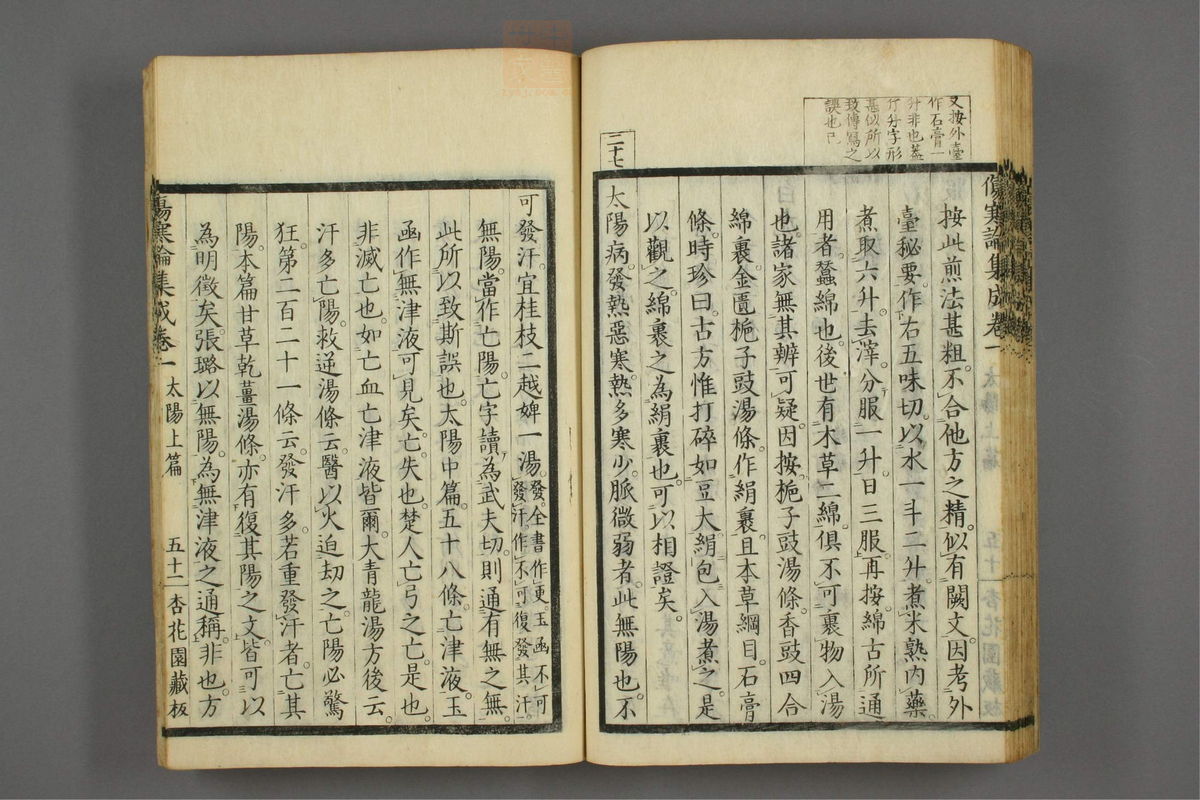 又按外臺
作石膏一
升非也蓋
行升字形
甚似所以
致傳寫之
誤也已
傷寒論集成卷一
按此煎法甚粗。不合他方之精。似有闕文。因考外
臺秘要。作右五味切。以水一斗二升。煮米熟內藥。
煮取六升。去滓。分服一升。日三服。再按。綿古所通
用者。蠶綿也。後世有木草二綿。俱不可裹物入湯
也。諸家無其辨。可疑。因按。梔子豉湯條。香豉四合
綿裹。金匱梔子豉湯條。作絹裹。且本草綱目。石膏
條。時珍曰。古方惟打碎如豆大。絹包入湯煮之。是
以觀之。綿裹之為絹裹也。可以相證矣。
二十七
太陽病。發熱惡寒。熱多寒少。脈微弱者。此無陽也。不
可發汗。宜桂枝二越婢一湯。發。全書作更。玉函不可
發汗。作不可復發其汗。
無陽。當作亡陽。亡字讀為武夫切。則通有無之無。
此所以致斯誤也。太陽中篇五十八條。亡津液。玉
函作無津液。可見矣。亡。失也。楚人亡弓之亡是也。
非滅亡也。如亡血亡津液皆爾。大青龍湯方後云。
汗多亡陽。救逆湯條云。醫以火迫劫之。亡陽必驚
狂。第二百二十一條云。發汗多。若重發汗者。亡其
陽。本篇甘草乾薑湯條。亦有復其陽之文。皆可以
為明徵矣。張璐以無陽。為無津液之通稱。非也。方
傷寒論集成卷一 太陽上篇 五十二 杏花園藏板